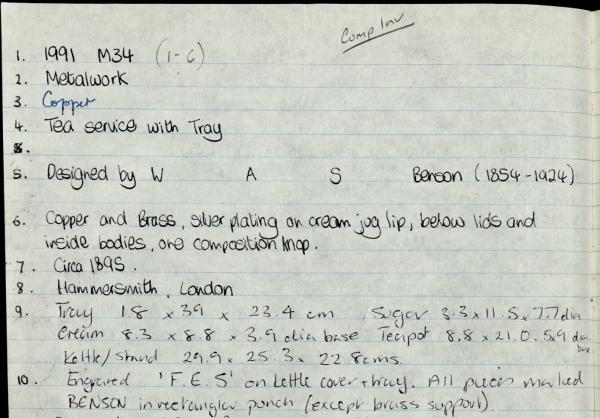 Comp Inv
1. 1991 M34 (1-6)
2. Metalwork
3. Copper
4. Tea service with Tray
5. Designed by W A S Benson (1854-1924)
6. Copper and Brass, silver plating on cream jug lip, below lids and
inside bodies, one composition knop.
7. Circa 1895.
8. Hammersmith, London
9. Tray 1.8 x 39 x 23.4 cm Sugar 3.3 x 11.5 x 7.7 dia
Cream 8.3 x 8.8 x 3.9 dia base Teapot 8.8 x 21.0. 5.9 dia. base
Kettle/stand 29.9 x 25.3 x 22 8cms.
10. Engraved 'F.E.S' on kettle cover + tray. All pieces marked
BENSON in rectangular punch (except brass support).